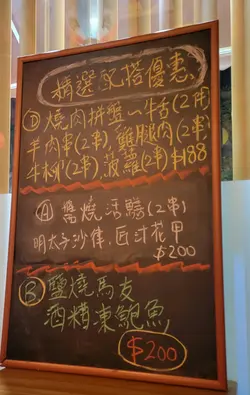 精選配搭優惠
D 燒肉拼盤－牛舌(2串)
羊肉串(2串), 雞腿肉(2串)
牛柳(2串), 菠蘿(2串) $188
A 醬燒活鰻(2串)
明太子沙律, 匠汁花甲
$200
B 鹽燒馬友
酒糟凍鮑魚
$200